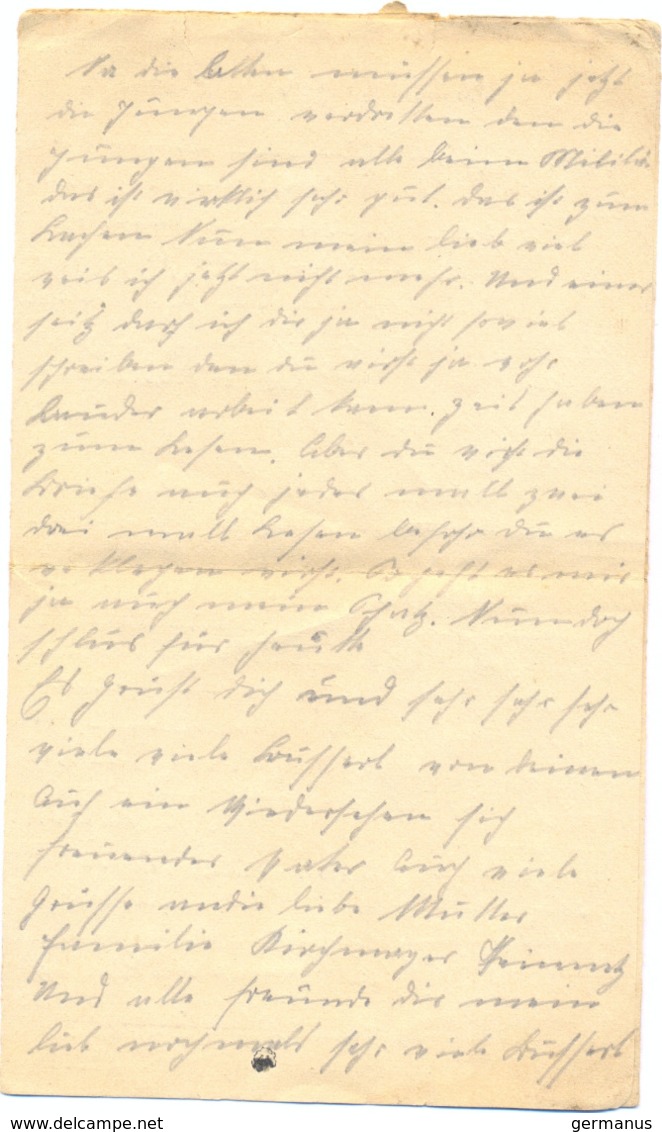 Na die Alten müssen ja jetzt
die Jungen vertretten den die
Jungen sind alle beim Militär
das ist wirklich sehr gut. das ist zum
Lachen Nun mein lieb viel
weis ich jetzt nicht mehr. Und einer
seitz darf ich dir ja nicht soviel
schreiben den du wirst ja vohr
lauder arbeit kaum. zeit haben
zum Lesen. Aber du wirst die
Briefe auch jedes mall zwei
drei mall Lesen befohr du es
wirst. So geht es mir
ja auch mein Schatz. Nun doch
schlus für heute
Es grüst dich und sehr sehr sehr
viele viele Busserl von deinen
Auf ein Wiedersehen sich
freuender Vater Auch viele
Grüsse andie liebe Mutter
Familie Kirchmayer
Und alle freunde dir mein
lieb nochmals sehr viele Busserl
www.delcampe.net
germanus